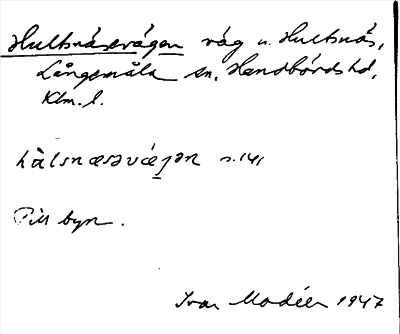 Hultsnäsvägen väg n. Hultsnäs,
Långemåla sn, Handbörds hd,
Klm. l.
hàlsnæsəvǽjən s. 141
Till byn.
Ivar Modéer 1947